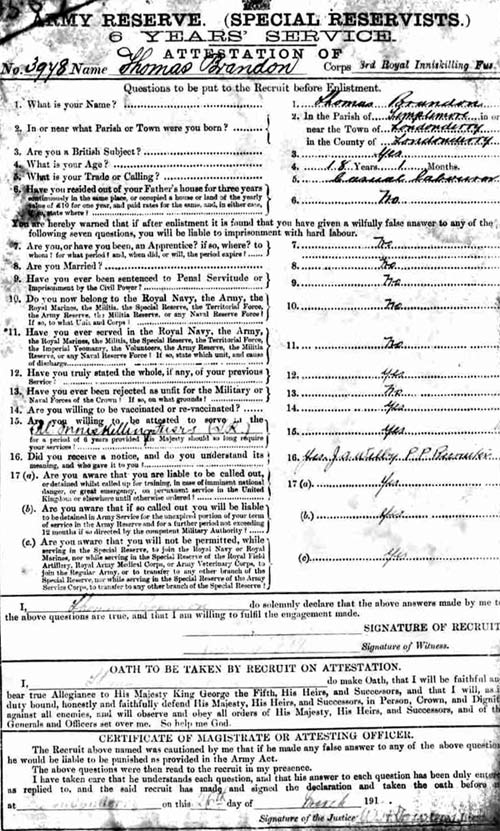 ARMY RESERVE. (SPECIAL RESERVISTS.)
6 YEARS' SERVICE.
ATTESTATION OF
No. 3978 Name Thomas Brandon Corps 3rd Royal Inniskilling Fus.
Questions to be put to the Recruit before Enlistment.
1. What is your Name? 1. Thomas Brandon
2. In or near what Parish or Town were you born? 2. In the Parish of Templemore in or
near the Town of Londonderry
in the County of Londonderry
3. Are you a British Subject? 3. Yes
4. What is your Age? 4. 18 Years 1 Months.
5. What is your Trade or Calling? 5. Casual Labourer
6. Have you resided out of your Father's house for three years 6. No
continuously in the same place, or occupied a house or land of the yearly
value of £10 for one year, and paid rates for the same, and, in either case,
if so, state where?
You are hereby warned that if after enlistment it is found that you have given a wilfully false answer to any of the
following seven questions, you will be liable to imprisonment with hard labour.
7. Are you, or have you been, an Apprentice? if so, where? to 7. No
whom? for what period? and, when did, or will, the period expire?
8. Are you Married? 8. No
9. Have you ever been sentenced to Penal Servitude or 9. No
Imprisonment by the Civil Power?
10. Do you now belong to the Royal Navy, the Army, the 10. No
Royal Marines, the Militia, the Special Reserve, the Territorial Force,
the Army Reserve, the Militia Reserve, or any Naval Reserve Force?
If so, to what Unit and Corps?
*11. Have you ever served in the Royal Navy, the Army, 11. No
the Royal Marines, the Militia, the Special Reserve, the Territorial Force,
the Imperial Yeomanry, the Volunteers, the Army Reserve, the Militia
Reserve, or any Naval Reserve Force? If so, state which unit, and cause
of discharge
12. Have you truly stated the whole, if any, of your previous 12. Yes
Service?
13. Have you ever been rejected as unfit for the Military or 13. No
Naval Forces of the Crown? If so, on what grounds?
14. Are you willing to be vaccinated or re-vaccinated? 14. Yes
15. Are you willing to be attested to serve in the 15. Yes
Inniskilling Fusiliers (S.R.)
for a period of 6 years provided His Majesty should so long require
your services?
16. Did you receive a notice, and do you understand its 16.
meaning, and who gave it to you?
17 (a). Are you aware that you are liable to be called out, 17 (a). Yes
or detained whilst called up for training, in case of imminent national
danger, or great emergency, on permanent service in the United
Kingdom or elsewhere until otherwise ordered?
(b). Are you aware that if so called out you will be liable (b.) Yes
to be detained in Army Service for the unexpired portion of your term
of service in the Army Reserve and for a further period not exceeding
12 months if so directed by the competent Military Authority?
(c.) Are you aware that you will not be permitted, while (c) Yes
serving in the Special Reserve, to join the Royal Navy or Royal
Marines, nor while serving in the Special Reserve of the Royal Field
Artillery, Royal Army Medical Corps, or Army Veterinary Corps, to
join the Regular Army, or to transfer to any other branch of the
Special Reserve, nor while serving in the Special Reserve of the Army
Service Corps, to transfer to any other branch of the Special Reserve?
I, Thomas Brandon do solemnly declare that the above answers made by me to
the above questions are true, and that I am willing to fulfil the engagement made.
SIGNATURE OF RECRUIT
Signature of Witness.
OATH TO BE TAKEN BY RECRUIT ON ATTESTATION.
I, do make Oath, that I will be faithful and
bear true Allegiance to His Majesty King George the Fifth, His Heirs, and Successors, and that I will, as in
duty bound, honestly and faithfully defend His Majesty, His Heirs, and Successors, in Person, Crown, and Dignity
against all enemies, and will observe and obey all orders of His Majesty, His Heirs, and Successors, and of the
Generals and Officers set over me. So help me God.
CERTIFICATE OF MAGISTRATE OR ATTESTING OFFICER.
The Recruit above named was cautioned by me that if he made any false answer to any of the above questions
he would be liable to be punished as provided in the Army Act.
The above questions were then read to the recruit in my presence.
I have taken care that he understands each question, and that his answer to each question has been duly entered
as replied to, and the said recruit has made and signed the declaration and taken the oath before me
at on this 26th day of March 191
Signature of the Justice